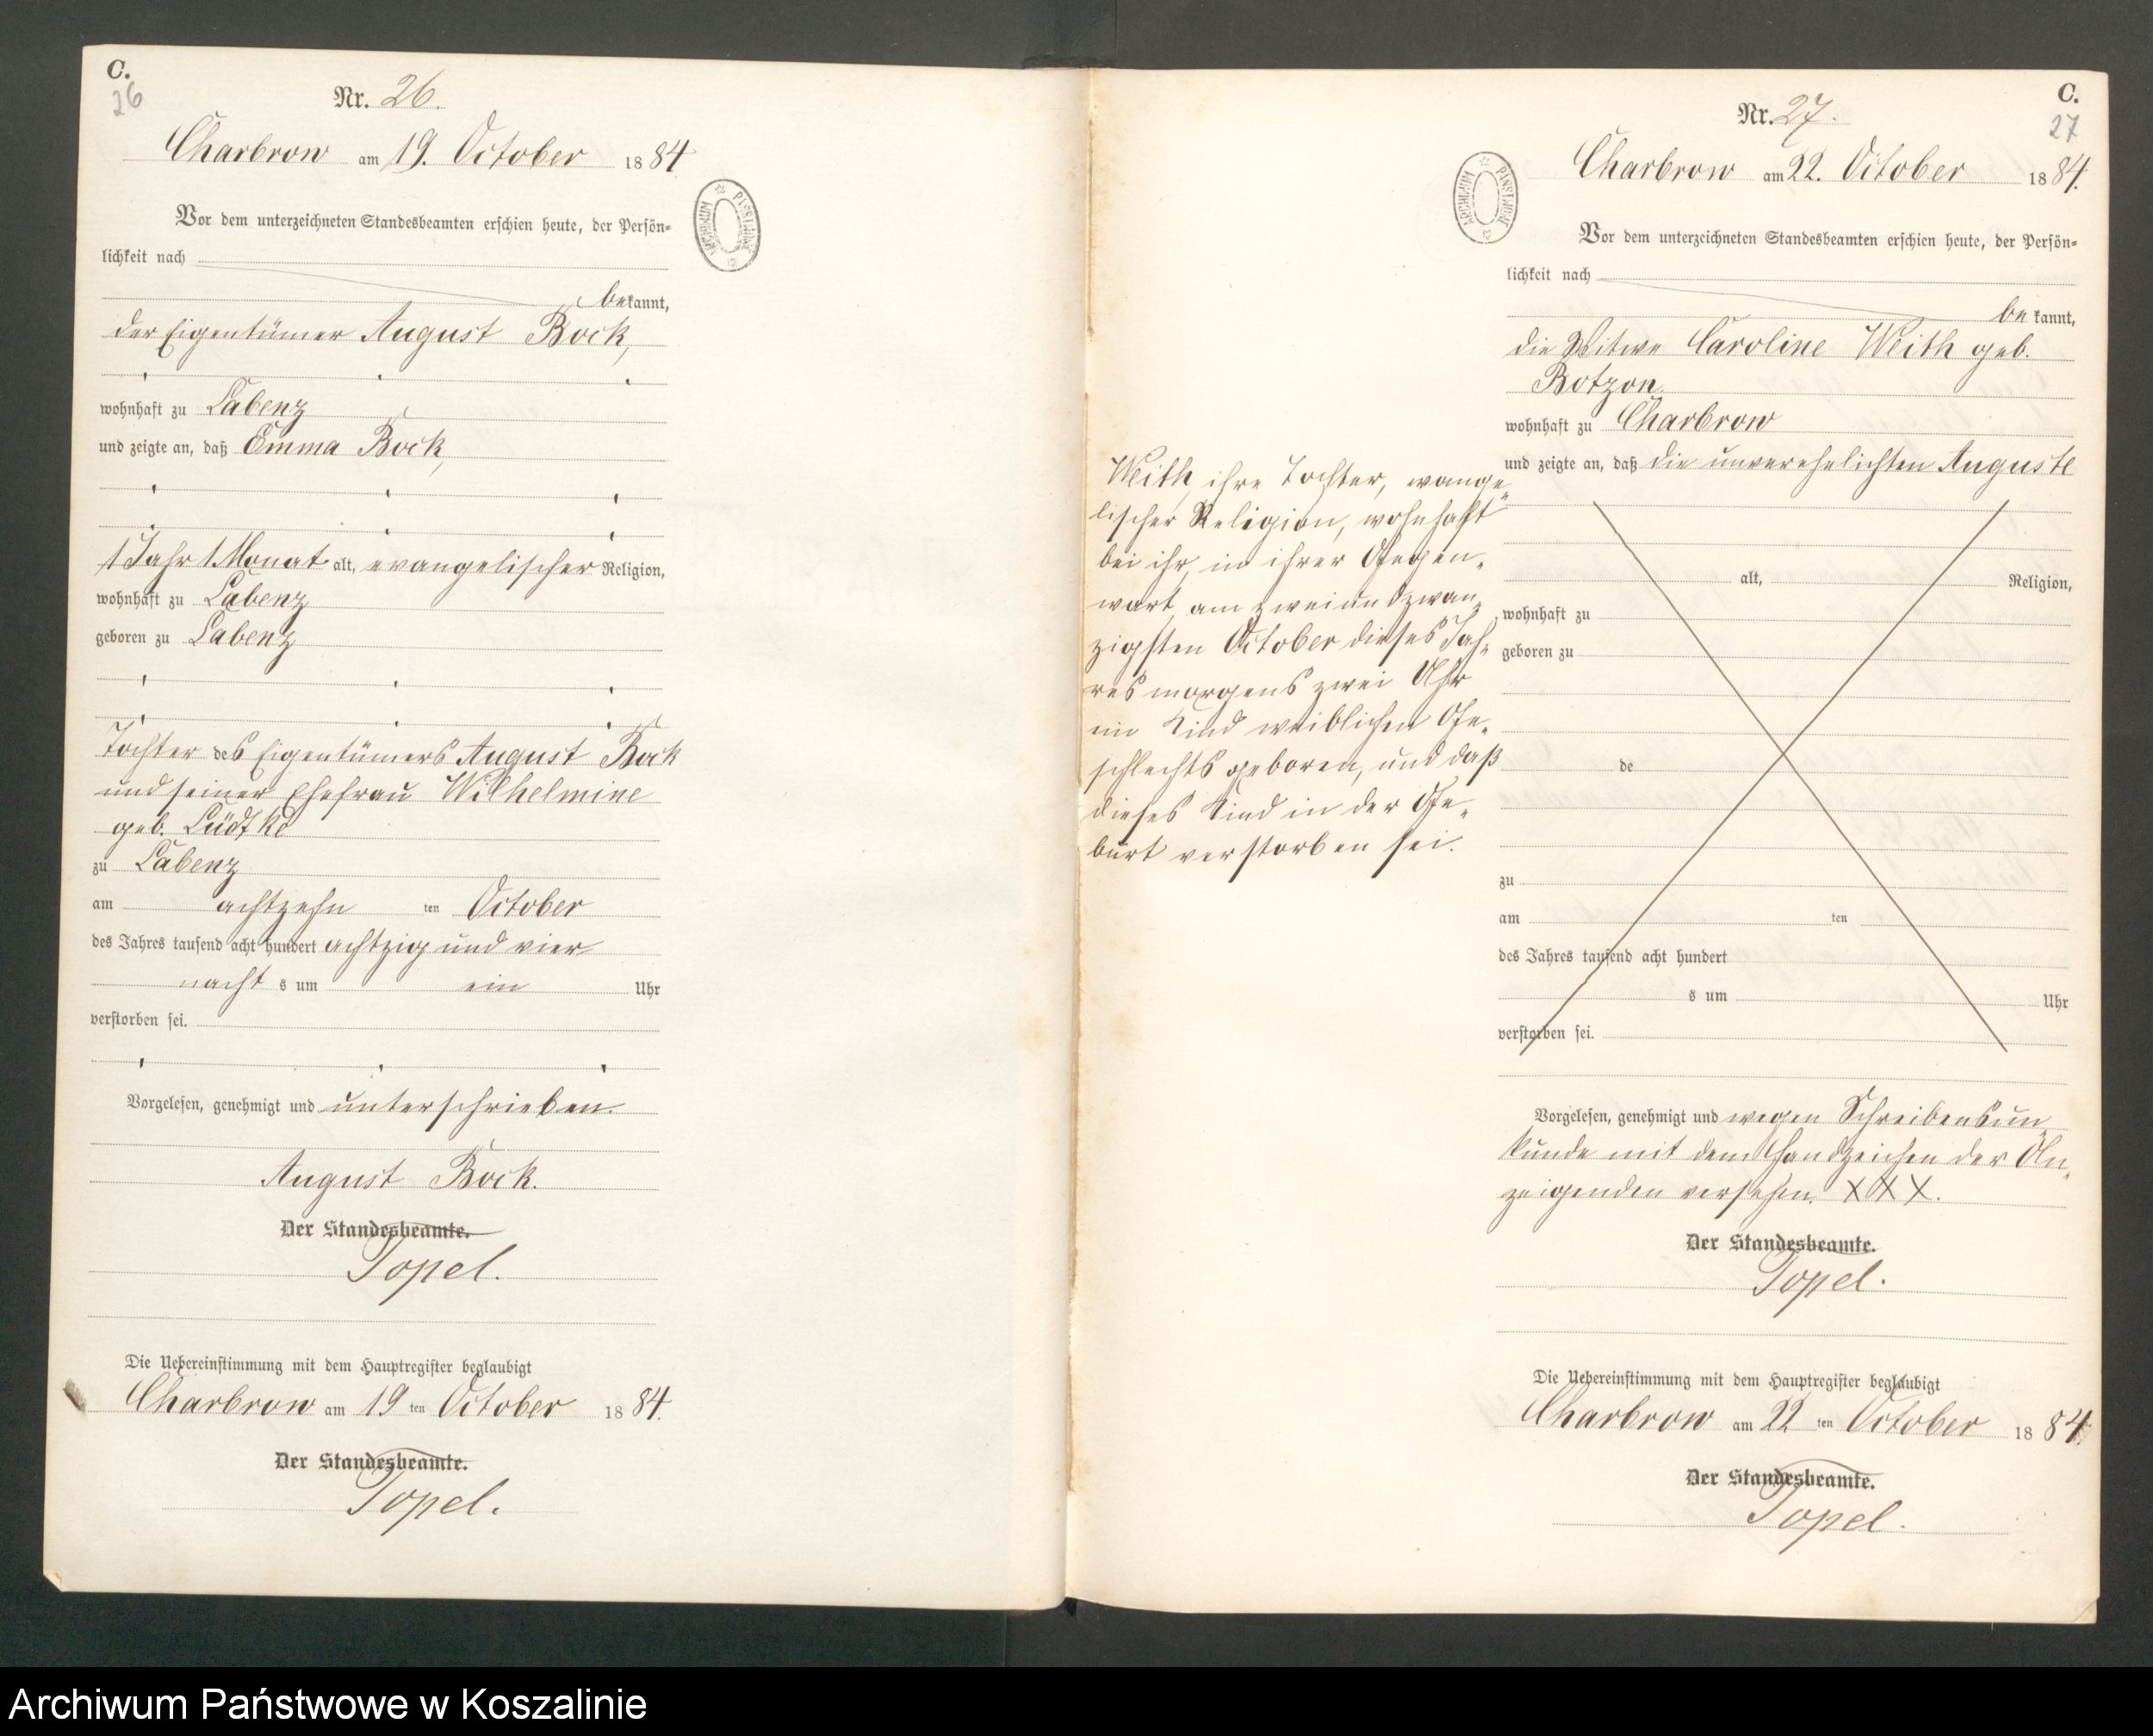 C.
26
Nr. 26.
Charbrow am 19. October 1884
ARCHIWUM PAŃSTWOWE
Vor dem unterzeichneten Standesbeamten erschien heute, der Persön=
lichkeit nach
bekannt,
der Eigentümer August Bock,
wohnhaft zu Labenz
und zeigte an, daß Emma Bock,
1 Jahr 1 Monat alt, evangelischer Religion,
wohnhaft zu Labenz
geboren zu Labenz
Tochter des Eigentümers August Bock
und seiner Ehefrau Wilhelmine
geb. Lüdtke
zu Labenz
am achtzehn ten October
des Jahres tausend acht hundert achtzig und vier
nacht s um ein Uhr
verstorben sei.
Vorgelesen, genehmigt und unterschrieben.
August Bock.
Der Standesbeamte.
Topel.
Die Uebereinstimmung mit dem Hauptregister beglaubigt
Charbrow am 19 ten October 1884.
Der Standesbeamte.
Topel.
C.
27
Nr. 27.
Charbrow am 22. October 1884.
ARCHIWUM PAŃSTWOWE
Vor dem unterzeichneten Standesbeamten erschien heute, der Persön=
lichkeit nach
bekannt,
die Witwe Caroline Weith geb.
Botzon
wohnhaft zu Charbrow
und zeigte an, daß die unverehelichten Auguste
Weith, ihre Tochter, evange=
lischer Religion, wohnhaft
bei ihr, in ihrer Gegen=
wart am zweiundzwan=
zigsten October dieses Jah=
res morgens zwei Uhr
ein Kind weiblichen Ge=
schlechts geboren, und daß
dieses Kind in der Ge=
burt verstorben sei.
alt, Religion,
wohnhaft zu
geboren zu
de
zu
am ten
des Jahres tausend acht hundert
s um Uhr
verstorben sei.
Vorgelesen, genehmigt und wegen Schreibensun=
kunde mit dem Handzeichen der An=
zeigenden versehen. XXX.
Der Standesbeamte.
Topel.
Die Uebereinstimmung mit dem Hauptregister beglaubigt
Charbrow am 22 ten October 1884.
Der Standesbeamte.
Topel.
Archiwum Państwowe w Koszalinie